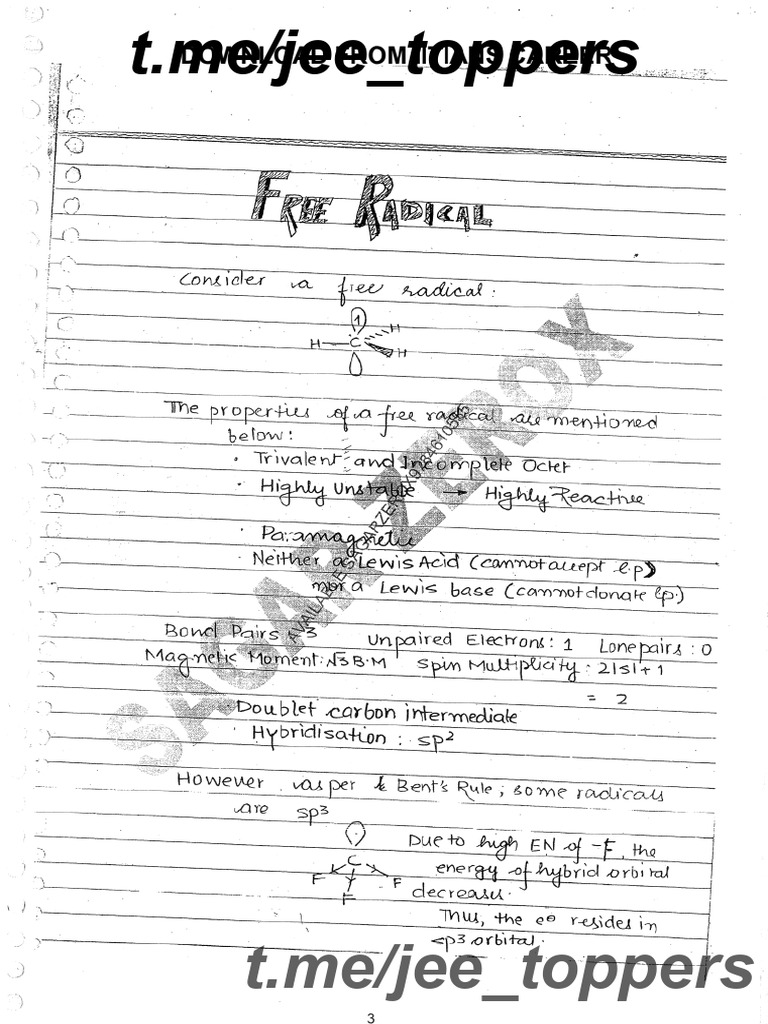 DOWNLOAD FROM IITIANS CAREER
t.me/jee_toppers
FREE RADICAL
Consider a free radical:
1
H C H
H
The properties of a free radical are mentioned
below:
• Trivalent and Incomplete Octet
• Highly Unstable → Highly Reactive
• Paramagnetic
• Neither a Lewis Acid (cannot accept l.p)
nor a Lewis base (cannot donate l.p.)
Bond Pairs : 3 Unpaired Electrons: 1 Lonepairs: 0
Magnetic Moment: √3 B.M Spin Multiplicity: 2|s|+1
= 2
• Doublet carbon intermediate
• Hybridisation : sp2
However as per Bent's Rule, some radicals
are sp3
C
F F
F
Due to high EN of -F, the
energy of hybrid orbital
decreases.
Thus, the e⊖ resides in
sp3 orbital.
SAGAR ZEROX
t.me/jee_toppers
3